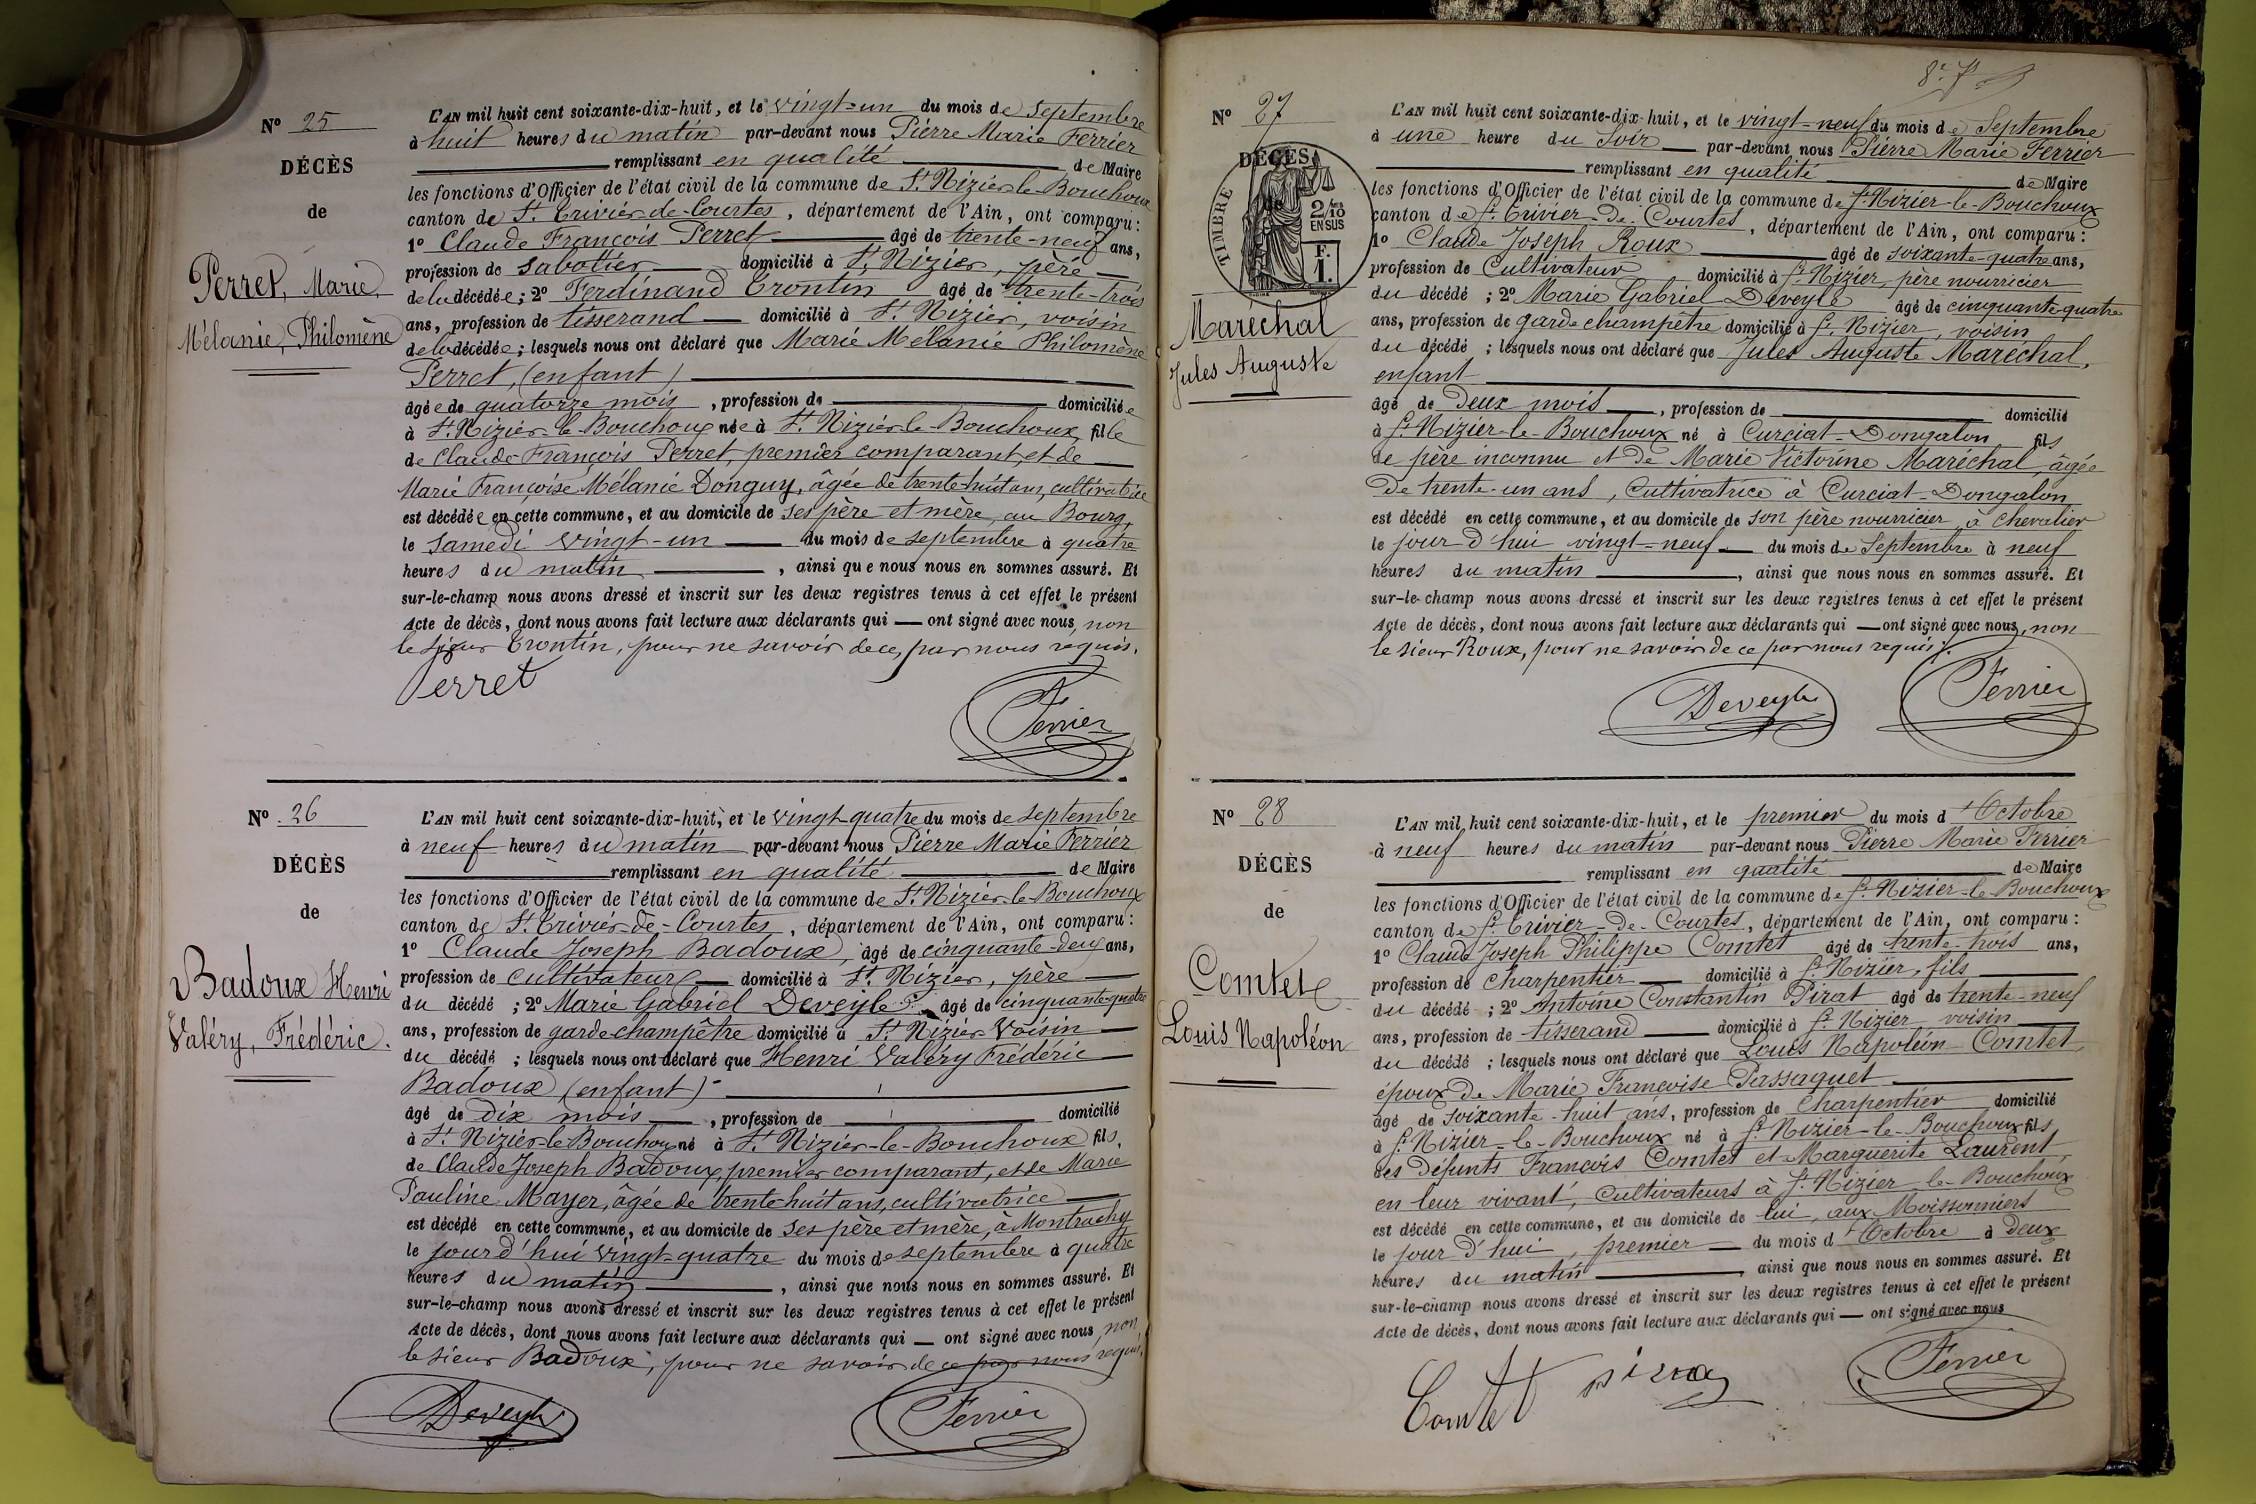 N° 25
DÉCÈS
de
Perret, Marie,
Mélanie, Philomène
L'AN mil huit cent soixante-dix-huit, et le vingt-un du mois de septembre
à huit heures du matin par-devant nous Pierre Marie Ferrier
remplissant en qualité de Maire
les fonctions d'Officier de l'état civil de la commune de St. Nizier-le-Bouchoux
canton de St. Trivier-de-Courtes, département de l'Ain, ont comparu :
1° Claude François Perret âgé de trente-neuf ans,
profession de sabotier domicilié à St. Nizier, père
de la décédée ; 2° Ferdinand Trontin âgé de trente-trois
ans, profession de tisserand domicilié à St. Nizier, voisin
de la décédée ; lesquels nous ont déclaré que Marie Mélanie Philomène
Perret, (enfant)
âgée de quatorze mois, profession de domiciliée
à St. Nizier-le-Bouchoux née à St. Nizier-le-Bouchoux, fille
de Claude François Perret, premier comparant, et de
Marie Françoise Mélanie Donguy, âgée de trente-huit ans, cultivatrice
est décédée en cette commune, et au domicile de ses père et mère, au Bourg,
le samedi vingt-un du mois de septembre à quatre
heures du matin, ainsi que nous nous en sommes assuré. Et
sur-le-champ nous avons dressé et inscrit sur les deux registres tenus à cet effet le présent
Acte de décès, dont nous avons fait lecture aux déclarants qui — ont signé avec nous, non
le sieur Trontin, pour ne savoir de ce, par nous requis.
Perret
Ferrier
N° 26
DÉCÈS
de
Badoux Henri
Valéry, Frédéric.
L'AN mil huit cent soixante-dix-huit, et le vingt-quatre du mois de septembre
à neuf heures du matin par-devant nous Pierre Marie Ferrier
remplissant en qualité de Maire
les fonctions d'Officier de l'état civil de la commune de St. Nizier-le-Bouchoux
canton de St. Trivier-de-Courtes, département de l'Ain, ont comparu :
1° Claude Joseph Badoux, âgé de cinquante-deux ans,
profession de cultivateur domicilié à St. Nizier, père
du décédé ; 2° Marie Gabriel Deveyle âgé de cinquante-quatre
ans, profession de garde champêtre domicilié à St. Nizier Voisin
du décédé ; lesquels nous ont déclaré que Henri Valéry Frédéric
Badoux (enfant)
âgé de dix mois, profession de domicilié
à St. Nizier-le-Bouchoux né à St. Nizier-le-Bouchoux fils,
de Claude Joseph Badoux, premier comparant, et de Marie
Pauline Mayer, âgée de trente-huit ans, cultivatrice
est décédé en cette commune, et au domicile de ses père et mère, à Montrachy
le jour d'hui vingt-quatre du mois de septembre à quatre
heures du matin, ainsi que nous nous en sommes assuré. Et
sur-le-champ nous avons dressé et inscrit sur les deux registres tenus à cet effet le présent
Acte de décès, dont nous avons fait lecture aux déclarants qui — ont signé avec nous, non
le sieur Badoux, pour ne savoir de ce par nous requis.
Deveyle
Ferrier
N° 27
DÉCÈS
de
TIMBRE
2/10
EN SUS
F.
1.
Maréchal
Jules Auguste
L'AN mil huit cent soixante-dix-huit, et le vingt-neuf du mois de Septembre
à une heure du soir par-devant nous Pierre Marie Ferrier
remplissant en qualité de Maire
les fonctions d'Officier de l'état civil de la commune de St. Nizier-le-Bouchoux
canton de St. Trivier-de-Courtes, département de l'Ain, ont comparu :
1° Claude Joseph Roux âgé de soixante-quatre ans,
profession de Cultivateur domicilié à St. Nizier, père nourricier
du décédé ; 2° Marie Gabriel Deveyle âgé de cinquante-quatre
ans, profession de garde champêtre domicilié à St. Nizier, voisin
du décédé ; lesquels nous ont déclaré que Jules Auguste Maréchal,
enfant
âgé de deux mois, profession de domicilié
à St. Nizier-le-Bouchoux né à Curciat-Dongalon fils
de père inconnu et de Marie Victorine Maréchal âgée
de trente-un ans, Cultivatrice à Curciat-Dongalon
est décédé en cette commune, et au domicile de son père nourricier à Chevalier
le jour d'hui vingt-neuf du mois de Septembre à neuf
heures du matin, ainsi que nous nous en sommes assuré. Et
sur-le-champ nous avons dressé et inscrit sur les deux registres tenus à cet effet le présent
Acte de décès, dont nous avons fait lecture aux déclarants qui — ont signé avec nous, non
le sieur Roux, pour ne savoir de ce par nous requis.
Deveyle
Ferrier
N° 28
DÉCÈS
de
Comtet
Louis Napoléon
L'AN mil huit cent soixante-dix-huit, et le premier du mois d'Octobre
à neuf heures du matin par-devant nous Pierre Marie Ferrier
remplissant en qualité de Maire
les fonctions d'Officier de l'état civil de la commune de St. Nizier-le-Bouchoux
canton de St. Trivier-de-Courtes, département de l'Ain, ont comparu :
1° Claude Joseph Philippe Comtet âgé de trente-trois ans,
profession de Charpentier domicilié à St. Nizier, fils
du décédé ; 2° Antoine Constantin Pirat âgé de trente-neuf
ans, profession de tisserand domicilié à St. Nizier voisin
du décédé ; lesquels nous ont déclaré que Louis Napoléon Comtet,
époux de Marie Françoise Passaquet
âgé de soixante-huit ans, profession de Charpentier domicilié
à St. Nizier-le-Bouchoux né à St. Nizier-le-Bouchoux fils
des défunts François Comtet et Marguerite Laurent,
en leur vivant, Cultivateurs à St. Nizier-le-Bouchoux
est décédé en cette commune, et au domicile de lui, aux Moissonniers
le jour d'hui, premier du mois d'Octobre à deux
heures du matin, ainsi que nous nous en sommes assuré. Et
sur-le-champ nous avons dressé et inscrit sur les deux registres tenus à cet effet le présent
Acte de décès, dont nous avons fait lecture aux déclarants qui — ont signé avec nous
Comtet
Ferrier